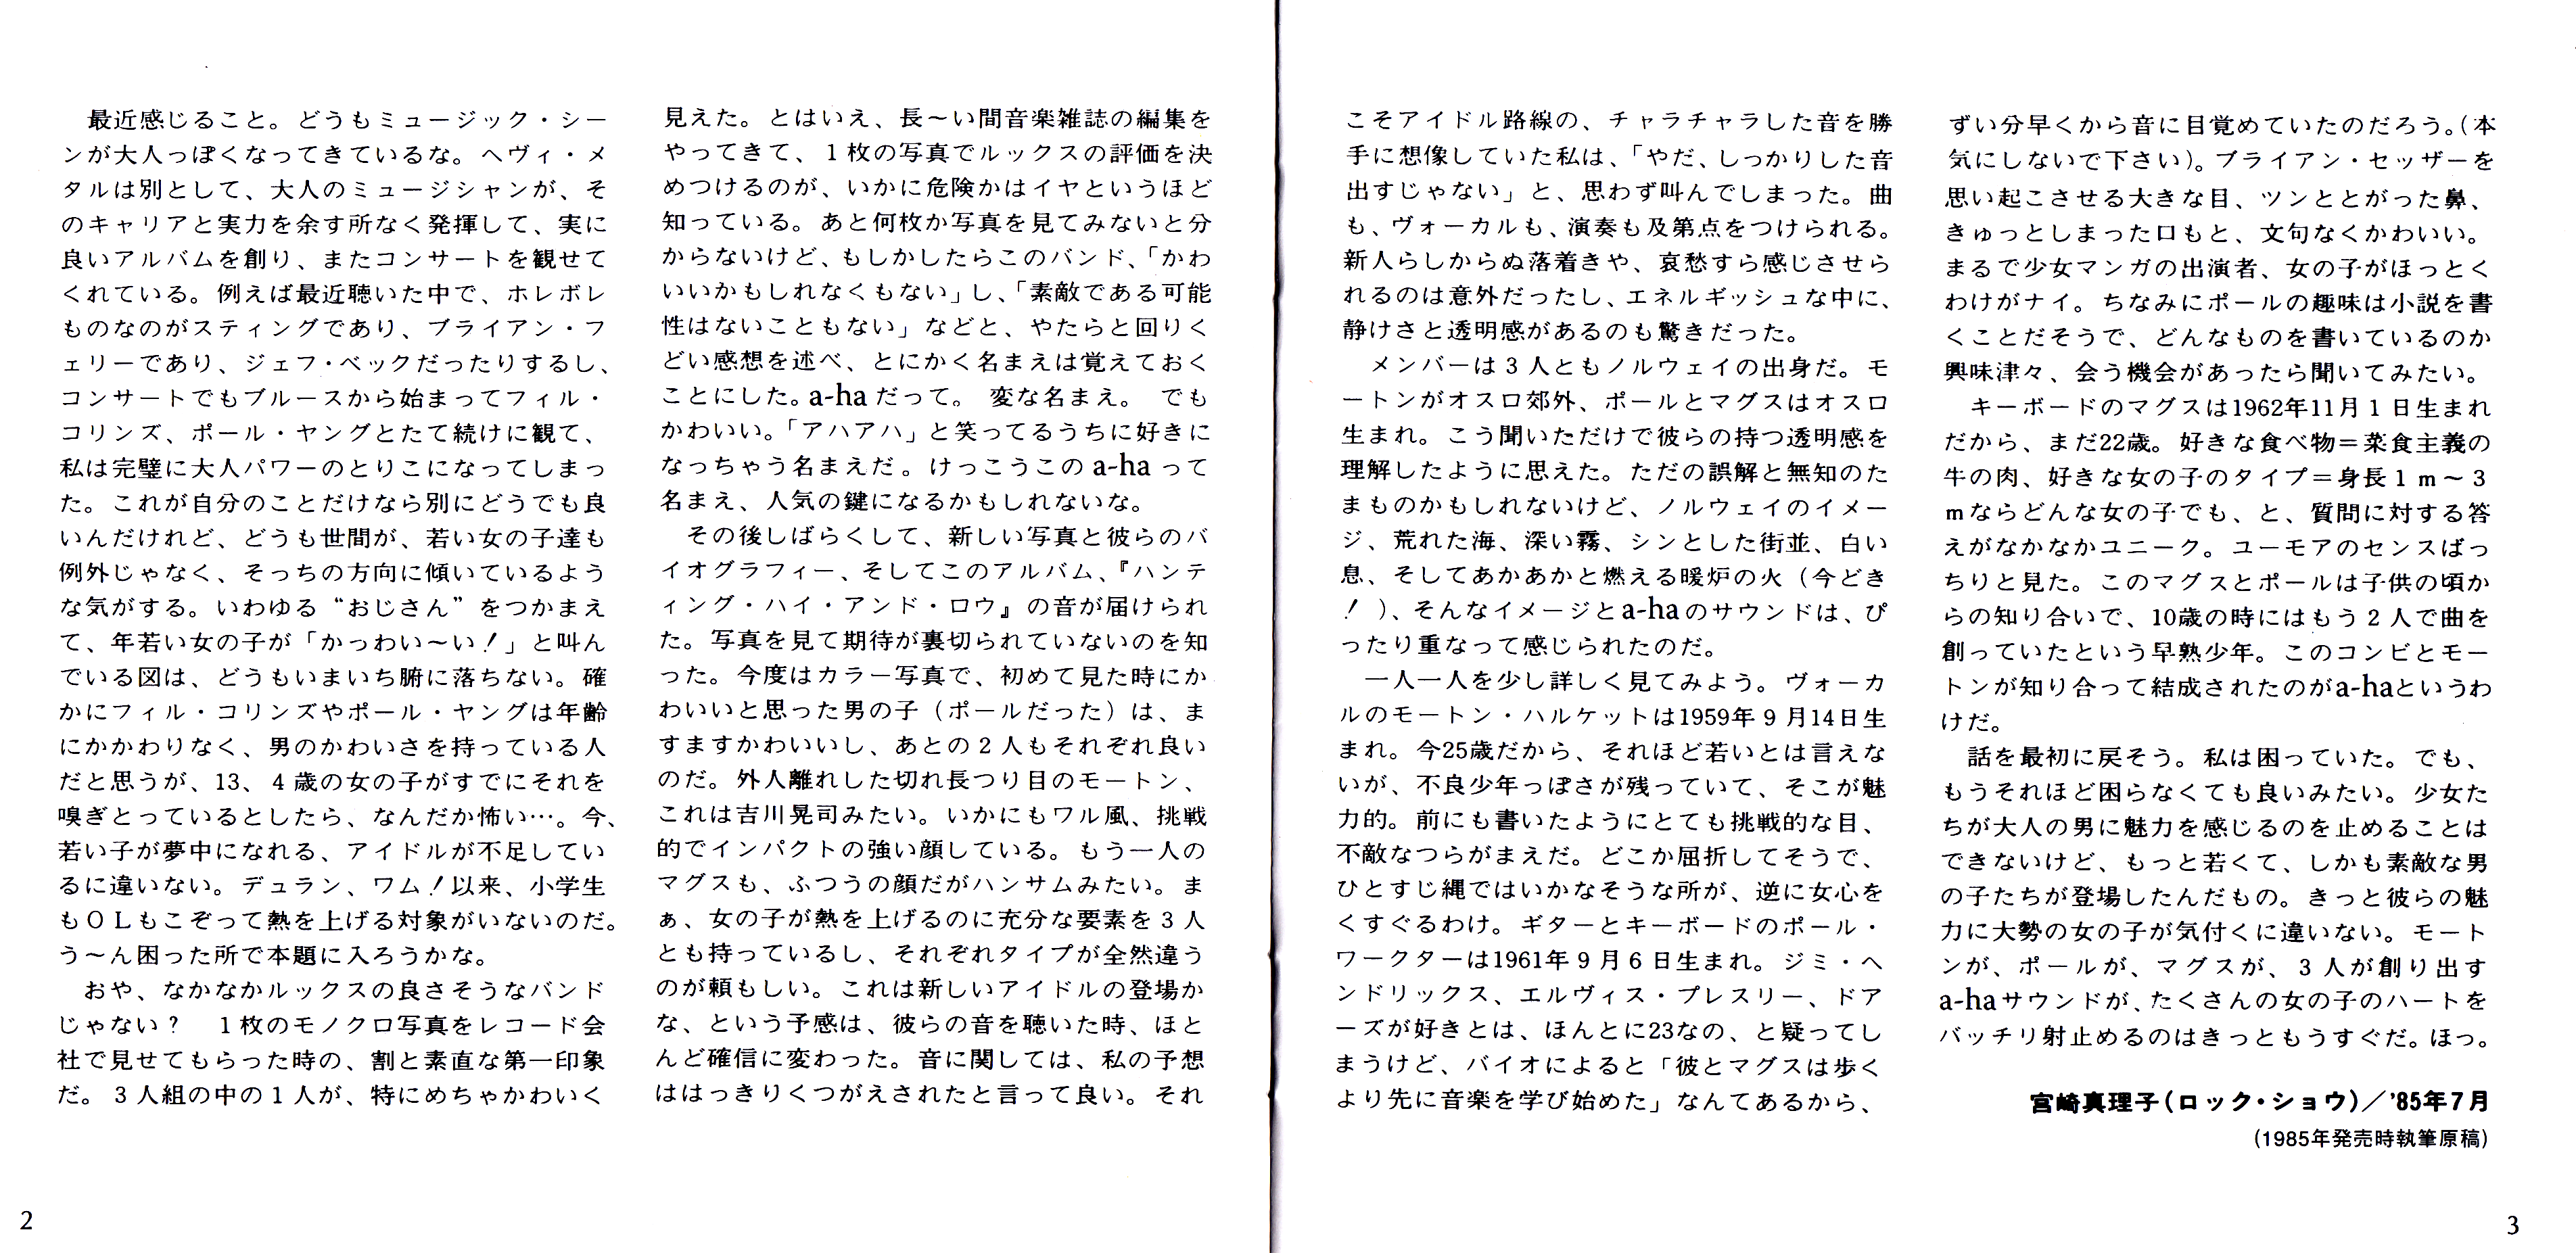 最近感じること。どうもミュージック・シー
ンが大人っぽくなってきているな。ヘヴィ・メ
タルは別として、大人のミュージシャンが、そ
のキャリアと実力を余す所なく発揮して、実に
良いアルバムを創り、またコンサートを観せて
くれている。例えば最近聴いた中で、ホレボレ
ものなのがスティングであり、ブライアン・フ
ェリーであり、ジェフ・ベックだったりするし、
コンサートでもブルースから始まってフィル・
コリンズ、ポール・ヤングとたて続けに観て、
私は完璧に大人パワーのとりこになってしまっ
た。これが自分のことだけなら別にどうでも良
いんだけれど、どうも世間が、若い女の子達も
例外じゃなく、そっちの方向に傾いているよう
な気がする。いわゆる“おじさん”をつかまえ
て、年若い女の子が「かっわい〜い!」と叫ん
でいる図は、どうもいまいち腑に落ちない。確
かにフィル・コリンズやポール・ヤングは年齢
にかかわりなく、男のかわいさを持っている人
だと思うが、13、4歳の女の子がすでにそれを
嗅ぎとっているとしたら、なんだか怖い…。今、
若い子が夢中になれる、アイドルが不足してい
るに違いない。デュラン、ワム!以来、小学生
もOLもこぞって熱を上げる対象がいないのだ。
う〜ん困った所で本題に入ろうかな。
おや、なかなかルックスの良さそうなバンド
じゃない? 1枚のモノクロ写真をレコード会
社で見せてもらった時の、割と素直な第一印象
だ。3人組の中の1人が、特にめちゃかわいく
見えた。とはいえ、長〜い間音楽雑誌の編集を
やってきて、1枚の写真でルックスの評価を決
めつけるのが、いかに危険かはイヤというほど
知っている。あと何枚か写真を見てみないと分
からないけど、もしかしたらこのバンド、「かわ
いいかもしれなくもない」し、「素敵である可能
性はないこともない」などと、やたらと回りく
どい感想を述べ、とにかく名まえは覚えておく
ことにした。a-haだって。 変な名まえ。 でも
かわいい。「アハアハ」と笑ってるうちに好きに
なっちゃう名まえだ。けっこうこのa-haって
名まえ、人気の鍵になるかもしれないな。
その後しばらくして、新しい写真と彼らのバ
イオグラフィー、そしてこのアルバム、『ハンテ
ィング・ハイ・アンド・ロウ』の音が届けられ
た。写真を見て期待が裏切られていないのを知
った。今度はカラー写真で、初めて見た時にか
わいいと思った男の子（ポールだった）は、ま
すますかわいいし、あとの2人もそれぞれ良い
のだ。外人離れした切れ長つり目のモートン、
これは吉川晃司みたい。いかにもワル風、挑戦
的でインパクトの強い顔している。もう一人の
マグスも、ふつうの顔だがハンサムみたい。ま
ぁ、女の子が熱を上げるのに充分な要素を3人
とも持っているし、それぞれタイプが全然違う
のが頼もしい。これは新しいアイドルの登場か
な、という予感は、彼らの音を聴いた時、ほと
んど確信に変わった。音に関しては、私の予想
ははっきりくつがえされたと言って良い。それ
こそアイドル路線の、チャラチャラした音を勝
手に想像していた私は、「やだ、しっかりした音
出すじゃない」と、思わず叫んでしまった。曲
も、ヴォーカルも、演奏も及第点をつけられる。
新人らしからぬ落着きや、哀愁すら感じさせら
れるのは意外だったし、エネルギッシュな中に、
静けさと透明感があるのも驚きだった。
メンバーは3人ともノルウェイの出身だ。モ
ートンがオスロ郊外、ポールとマグスはオスロ
生まれ。こう聞いただけで彼らの持つ透明感を
理解したように思えた。ただの誤解と無知のた
まものかもしれないけど、ノルウェイのイメー
ジ、荒れた海、深い霧、シンとした街並、白い
息、そしてあかあかと燃える暖炉の火（今どき
!）、そんなイメージとa-haのサウンドは、ぴ
ったり重なって感じられたのだ。
一人一人を少し詳しく見てみよう。ヴォーカ
ルのモートン・ハルケットは1959年9月14日生
まれ。今25歳だから、それほど若いとは言えな
いが、不良少年っぽさが残っていて、そこが魅
力的。前にも書いたようにとても挑戦的な目、
不敵なつらがまえだ。どこか屈折してそうで、
ひとすじ縄ではいかなそうな所が、逆に女心を
くすぐるわけ。ギターとキーボードのポール・
ワークターは1961年9月6日生まれ。ジミ・ヘ
ンドリックス、エルヴィス・プレスリー、ドア
ーズが好きとは、ほんとに23なの、と疑ってし
まうけど、バイオによると「彼とマグスは歩く
より先に音楽を学び始めた」なんてあるから、
ずい分早くから音に目覚めていたのだろう。（本
気にしないで下さい）。ブライアン・セッザーを
思い起こさせる大きな目、ツンととがった鼻、
きゅっとしまった口もと、文句なくかわいい。
まるで少女マンガの出演者、女の子がほっとく
わけがナイ。ちなみにポールの趣味は小説を書
くことだそうで、どんなものを書いているのか
興味津々、会う機会があったら聞いてみたい。
キーボードのマグスは1962年11月1日生まれ
だから、まだ22歳。好きな食べ物＝菜食主義の
牛の肉、好きな女の子のタイプ＝身長1m〜3
mならどんな女の子でも、と、質問に対する答
えがなかなかユニーク。ユーモアのセンスばっ
ちりと見た。このマグスとポールは子供の頃か
らの知り合いで、10歳の時にはもう2人で曲を
創っていたという早熟少年。このコンビとモー
トンが知り合って結成されたのがa-haというわ
けだ。
話を最初に戻そう。私は困っていた。でも、
もうそれほど困らなくても良いみたい。少女た
ちが大人の男に魅力を感じるのを止めることは
できないけど、もっと若くて、しかも素敵な男
の子たちが登場したんだもの。きっと彼らの魅
力に大勢の女の子が気付くに違いない。モート
ンが、ポールが、マグスが、3人が創り出す
a-haサウンドが、たくさんの女の子のハートを
バッチリ射止めるのはきっともうすぐだ。ほっ。
宮崎真理子（ロック・ショウ）／'85年7月
（1985年発売時執筆原稿）
2
3